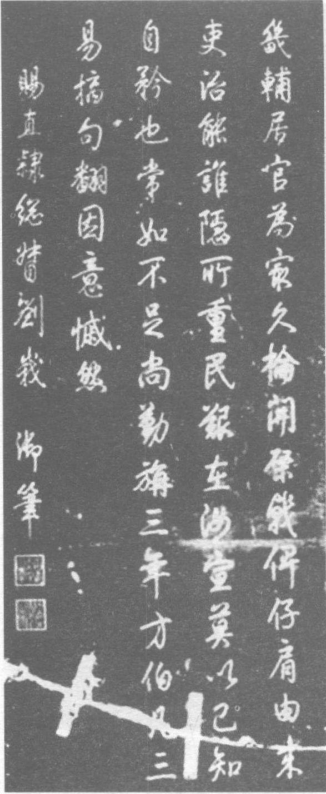 畿輔居官為冣久掄開棨戟俾仔肩由来
吏治能誰隱所重民艱在宣莫以已知
自矜也常如不足尚勤旃三年方伯凡三
易摛句翻因意慽然
賜直隸總督劉峩 御筆